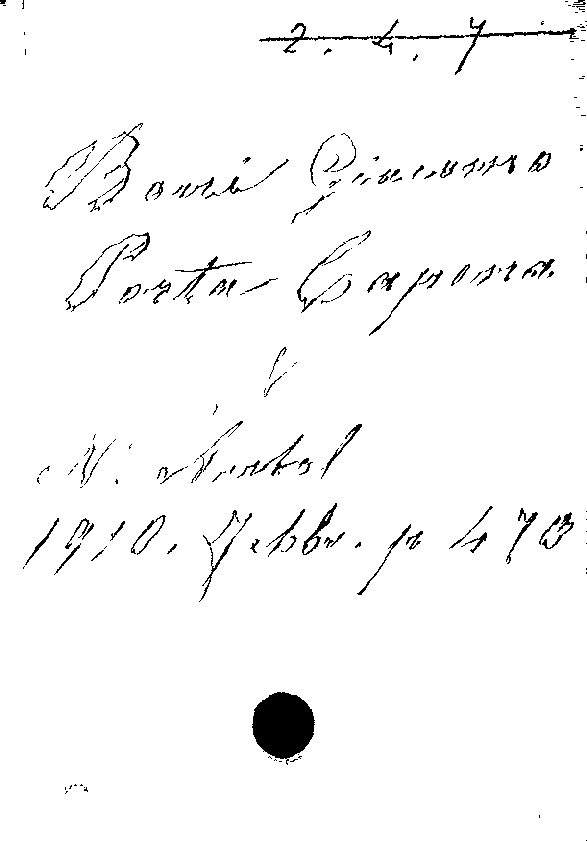 2. 4. 7
Boni Giacomo
Porta Capena
N. Antol
1910. Febbr. p 473